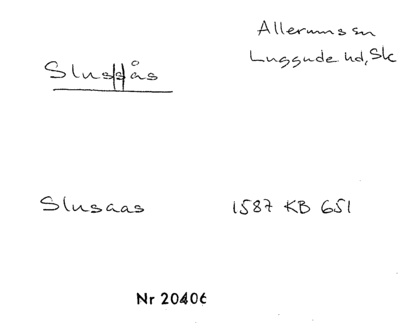 Allerums sn
Luggude hd, Sk
Slus||ås
Slusaas 1587 KB 651
Nr 20406